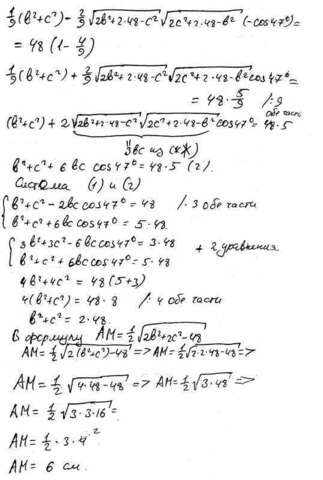 1/9(b²+c²) - 2/9 √(2b²+2·48-c²) √(2c²+2·48-b²) (-cos47°) =
= 48 (1 - 4/9)
1/9(b²+c²) + 2/9 √(2b²+2·48-c²) √(2c²+2·48-b²) cos47° =
= 48·5/9 /·9
обе части
(b²+c²) + 2 √(2b²+2·48-c²) √(2c²+2·48-b²) cos47° = 48·5
3bc из (**)
b²+c²+6bc cos47° = 48·5 (2).
Система (1) и (2)
{ b²+c²-2bc cos47° = 48 /·3 обе части
b²+c²+6bc cos47° = 5·48
{ 3b²+3c²-6bc cos47° = 3·48
b²+c²+6bc cos47° = 5·48 + 2 уравнения
4b²+4c² = 48(5+3)
4(b²+c²) = 48·8 /:4 обе части
b²+c² = 2·48
В формулу AM = 1/2 √(2b²+2c²-48)
AM = 1/2 √(2(b²+c²)-48) => AM = 1/2 √(2·2·48-48) =>
AM = 1/2 √(4·48-48) => AM = 1/2 √(3·48) =>
AM = 1/2 √(3·3·16) =
AM = 1/2·3·4 2
AM = 6 см.